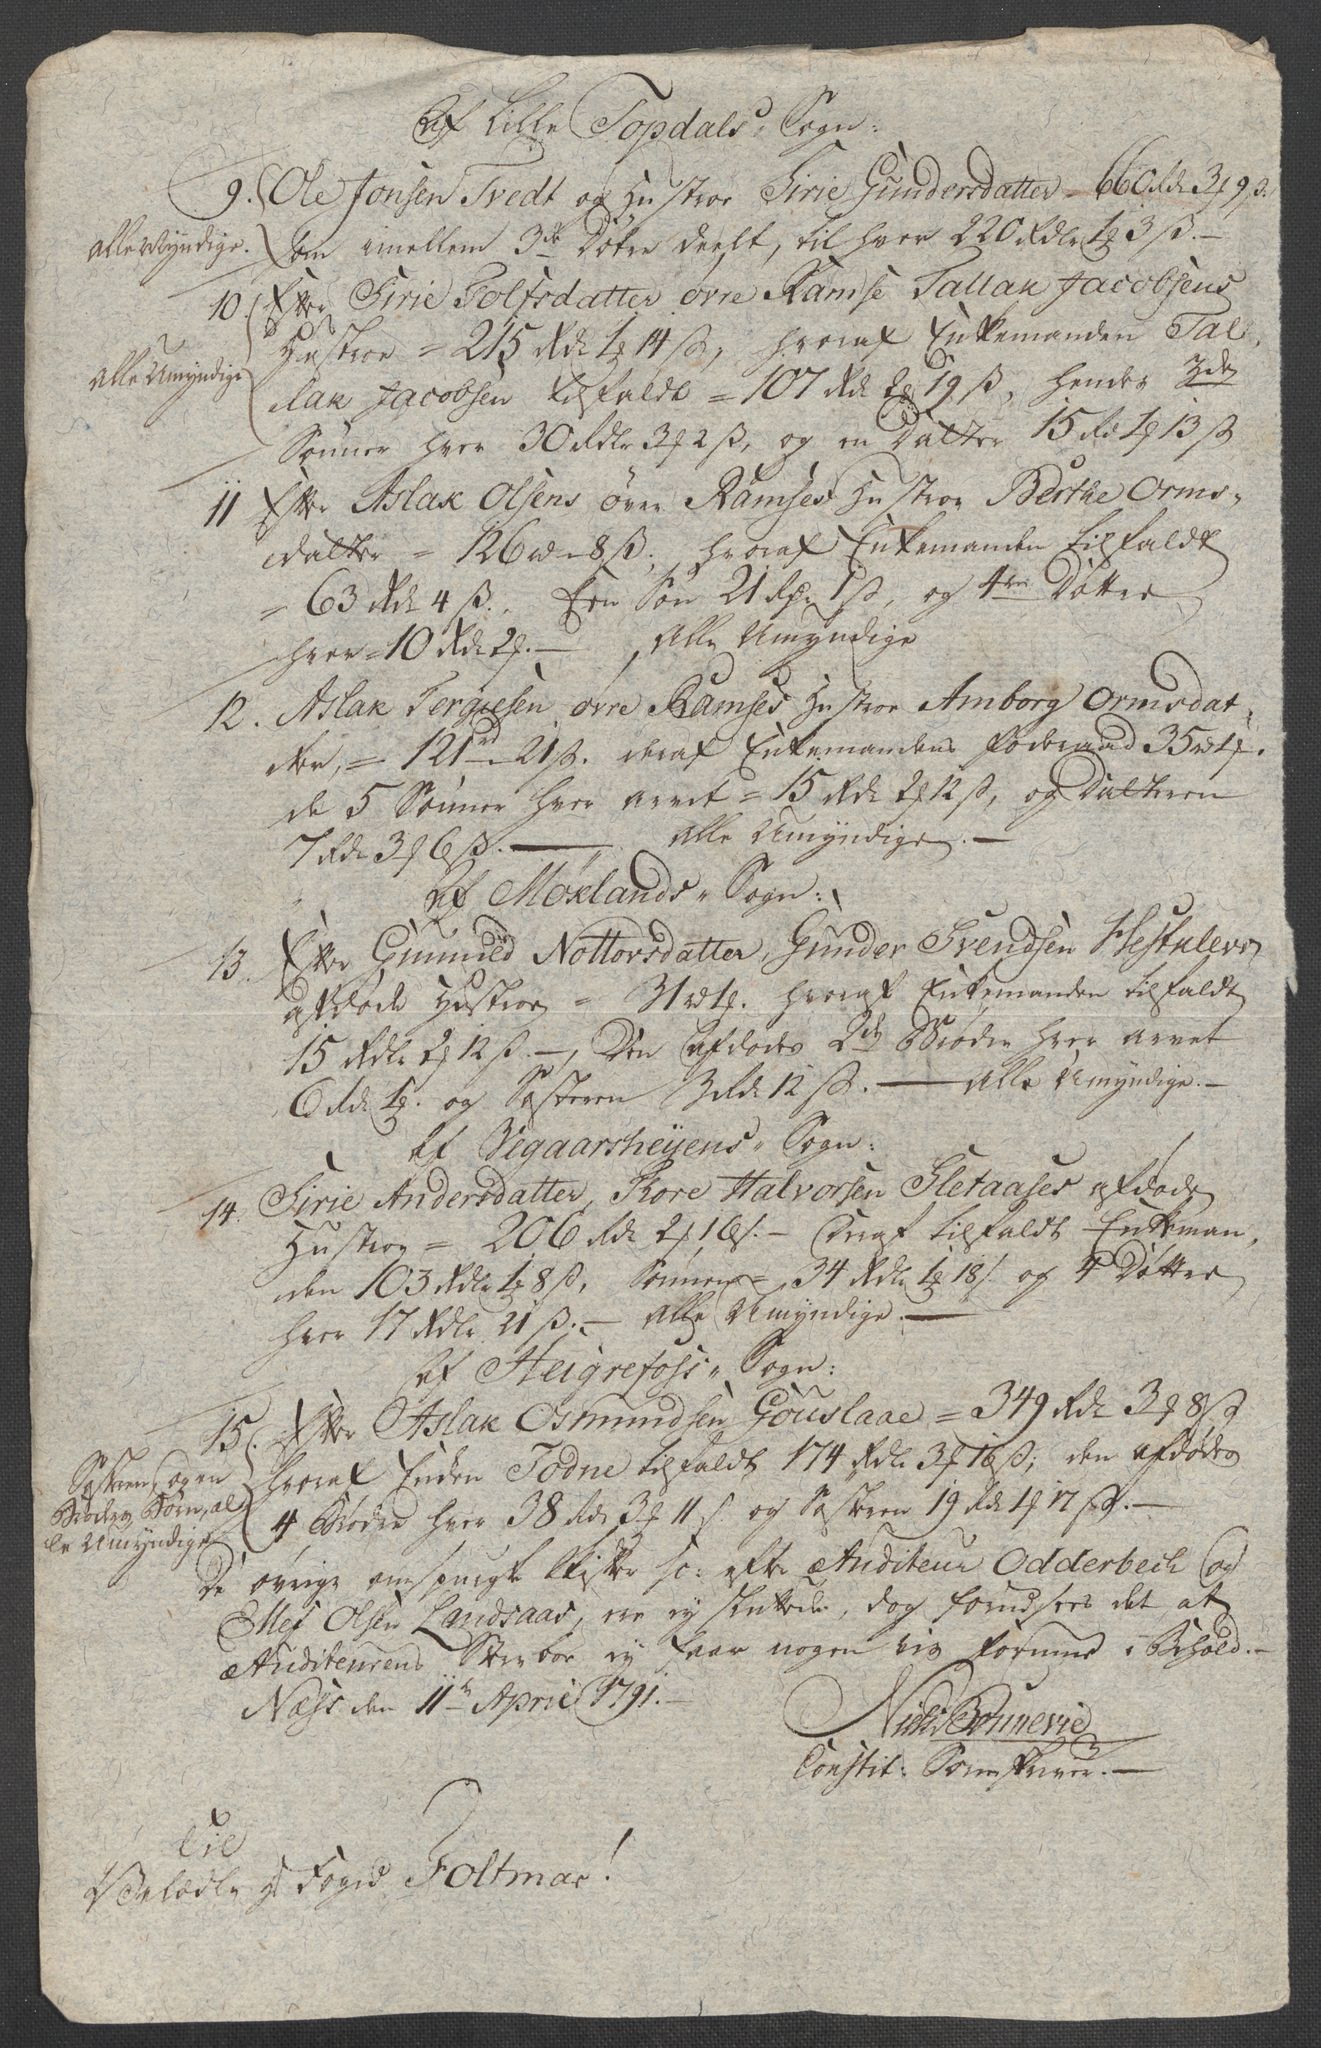 Af Lille Topdals Sogn:
9. Ole Jonsen Tvedt og Hustroe Sirie Gundersdatter = 660 Rdr 3 f 9 ß.
Alle Myndige.
som imellem 3de Døtre deelt, til hver 220 Rdlr 1 f 3 ß. —
10. Efter Sirie Tolfsdatter øvre Ramse Tallak Jacobsens
Hustroe = 215 Rdr 1 f 14 ß, hvoraf Enkemanden Tal-
Alle Umyndige
lak Jacobsen tilfaldt = 107 Rdr 2 f 19 ß, hendes 3de
Sønner hver 30 Rdlr 3 f 2 ß, og en Datter 15 Rd 1 f 13 ß
11 Efter Aslak Olsens øvre Ramses Hustroe Berthe Orms-
datter = 126 rd - 8 ß, hvoraf Enkemanden tilfaldt
= 63 Rdr 4 ß. Een Søn 21 Rdr 1 ß, og 4re Døttre
hver = 10 Rdr 2 f. — Alle Umyndige
12. Aslak Tergiesen øvre Ramses Hustroe Amborg Ormsdat-
ter, = 121 rd - 21 ß. deraf Enkemandens Foderaad 35 rd 1 f.
de 5 Sønner hver arvet = 15 Rdr 2 f 12 ß, og Datteren
7 Rdr 3 f 6 ß. — Alle Umyndige. —
Af Moklands Sogn:
13. Efter Gunnild Nottorsdatter, Gunder Svendsen
afdøde Hustroe = 31 rd 1 f. hvoraf Enkemanden tilfaldt
15 Rdlr 2 f 12 ß. —, Den afdødes 2de Brødre hver arvet
6 Rdr 1 f. og Søsteren 3 Rdr 12 ß. — Alle Umyndige. —
Af Vegaarsheÿens Sogn:
14. Sirie Andersdatter, Tore Halvorsen Sletaases afdøde
Hustroe = 206 Rdr 2 f 16 ß. — Deraf tilfaldt Enkeman-
den 103 Rdlr 1 f 8 ß, Sønnen = 34 Rdlr 1 f 18 ß og 4 Døttre
hver 17 Rdlr 21 ß. — Alle Umyndige. —
Af Heigrefoss Sogn:
15. Efter Aslak Osmundsen Gouslaae = 349 Rdr 3 f 8 ß
Søsteren, og en
hvoraf Enken Todne tilfaldt 174 Rdlr 3 f 16 ß; den afdødes
Broders Børn, al-
4 Brødre hver 38 Rdr 3 f 11 ß og Søsteren 19 Rdr 1 f 17 ß. —
le Umyndige
De øvrige omspurgte Skifter so: efter Auditeur Odderbech og
Olsen Landsaas, ere ey sluttede, dog forudsees det at
Auditeurens Sterboe ey haver nogen Liv Formue i Behold. —
Næss den 11te April 1791. —
Niels Bonnevie
Constit: Sorenskriver. —
Til
Velædle Hr Foged Foltmar!